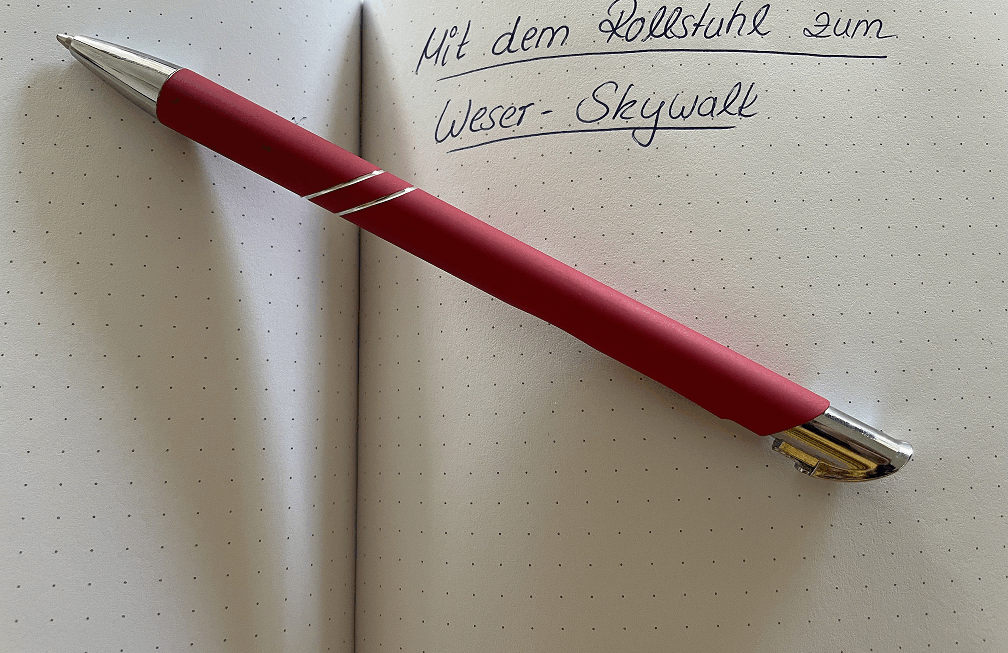 Mit dem Rollstuhl zum
Weser-Skywalk